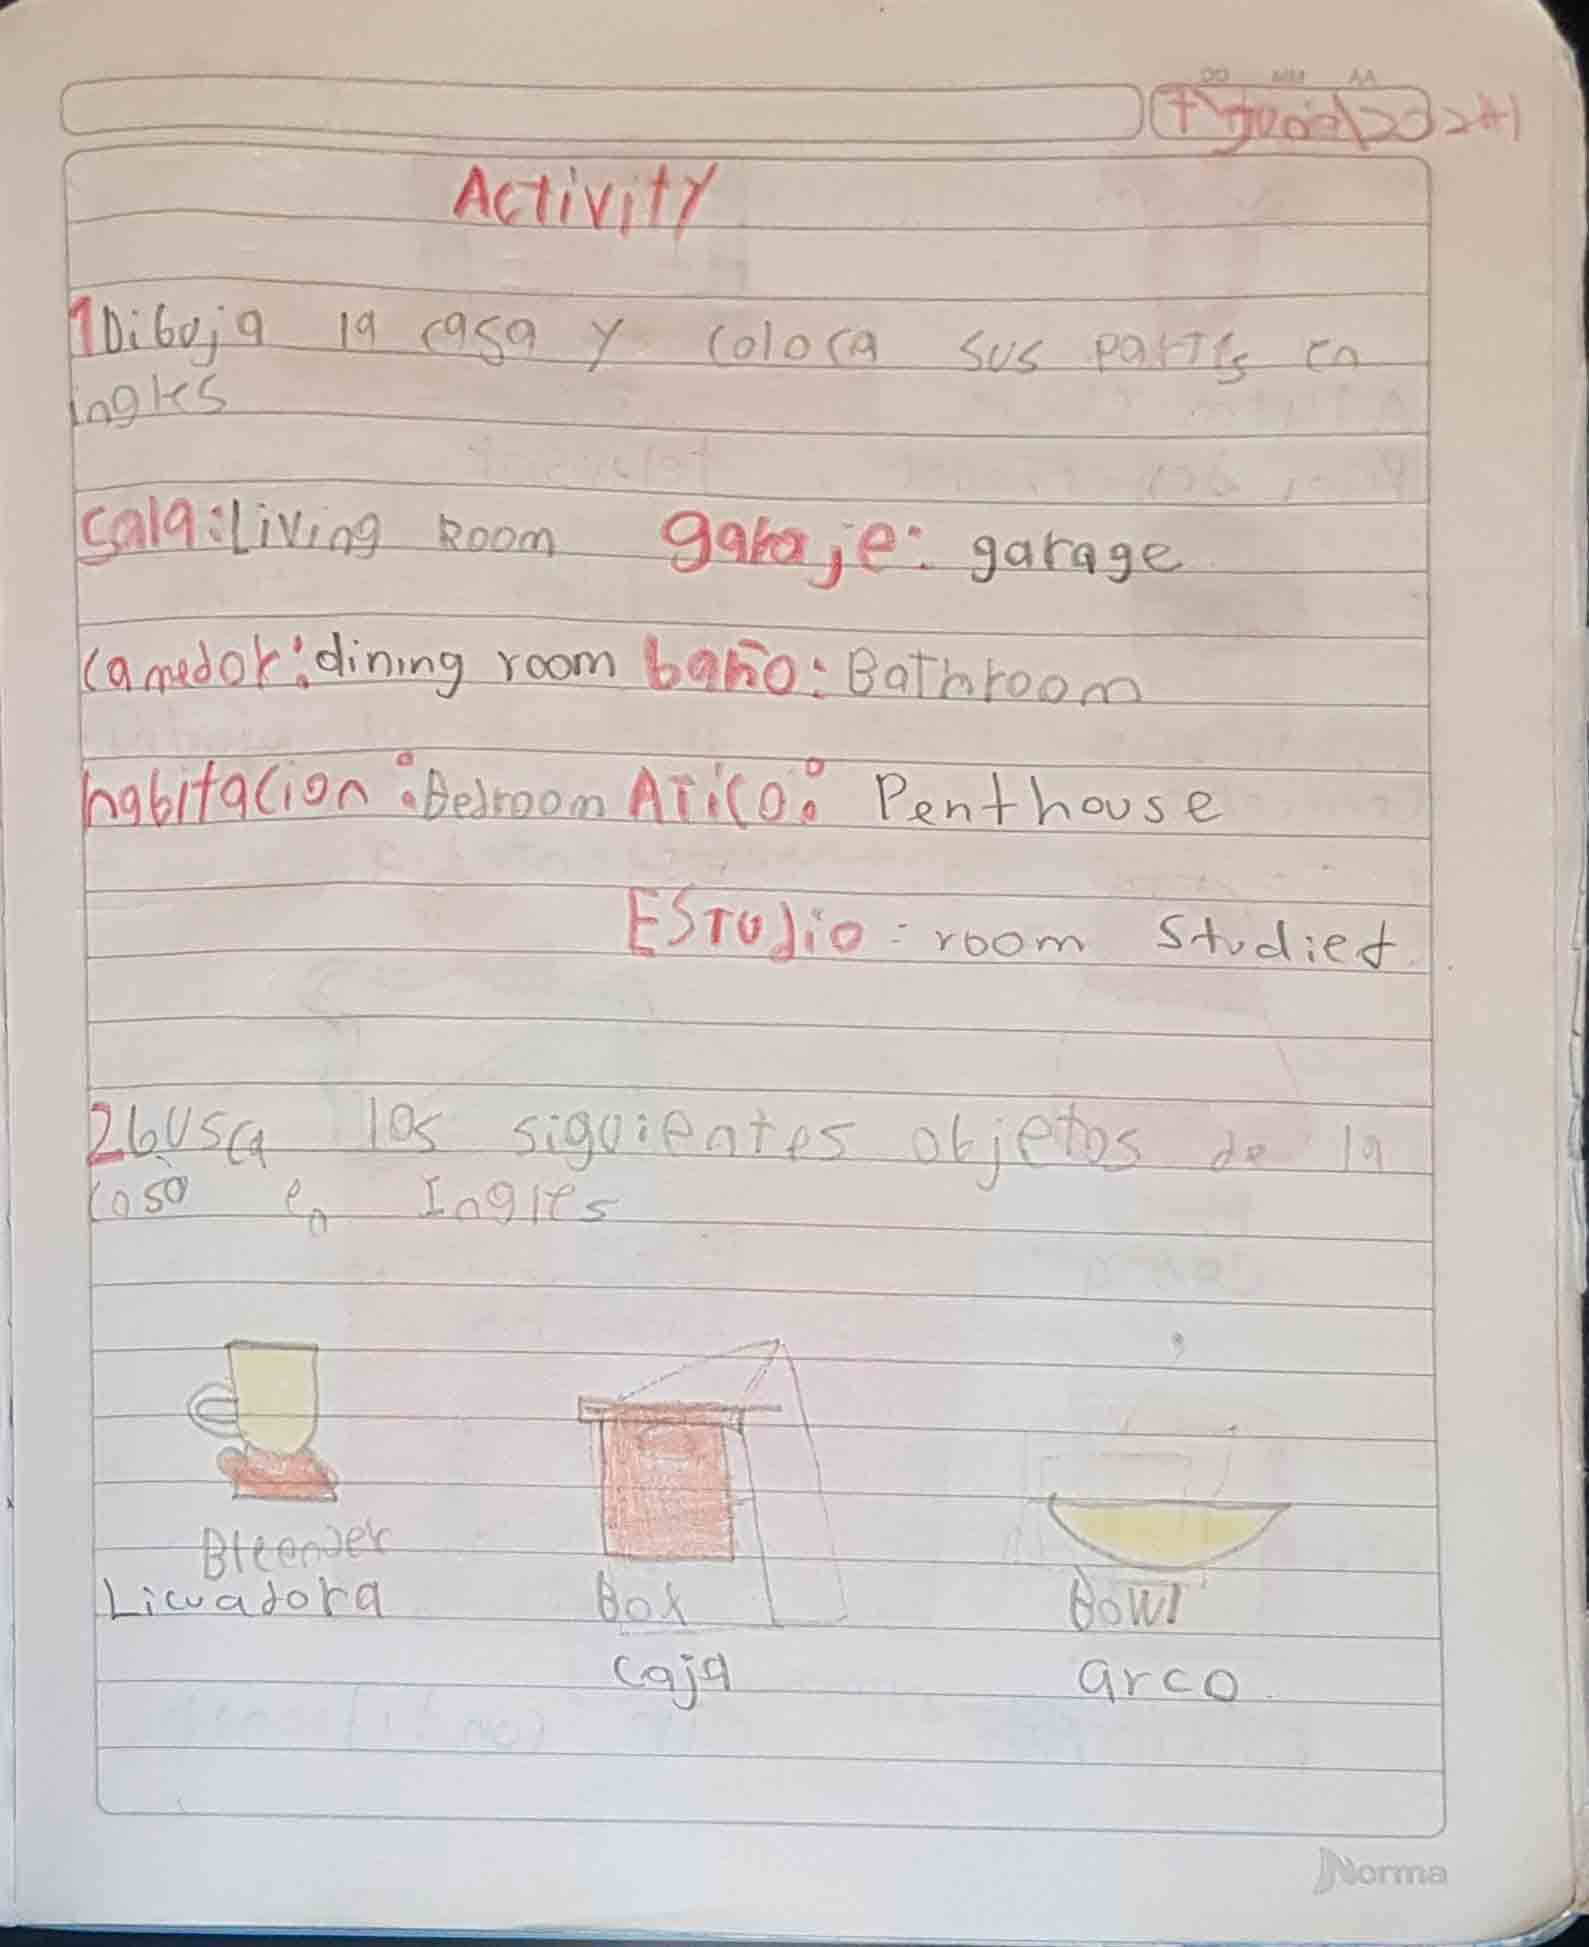 DD MM AA
Activity
1 Dibuja la casa y coloca sus partes en
ingles
Sala: Living Room garaje: garage
camedor: dining room baño: Bathroom
habitacion: Bedroom Atico: Penthouse
Estudio: room Studiet
2 busca los siguientes objetos de la
casa en Ingles
Bleender Box Bowl
Licuadora caja arco
Norma